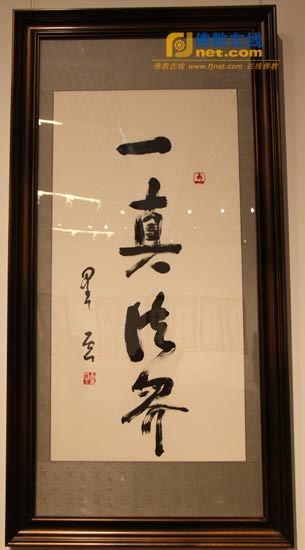 佛教在线
fjnet.com
佛教在线 www.fjnet.com 在线佛教
一真法界
星云